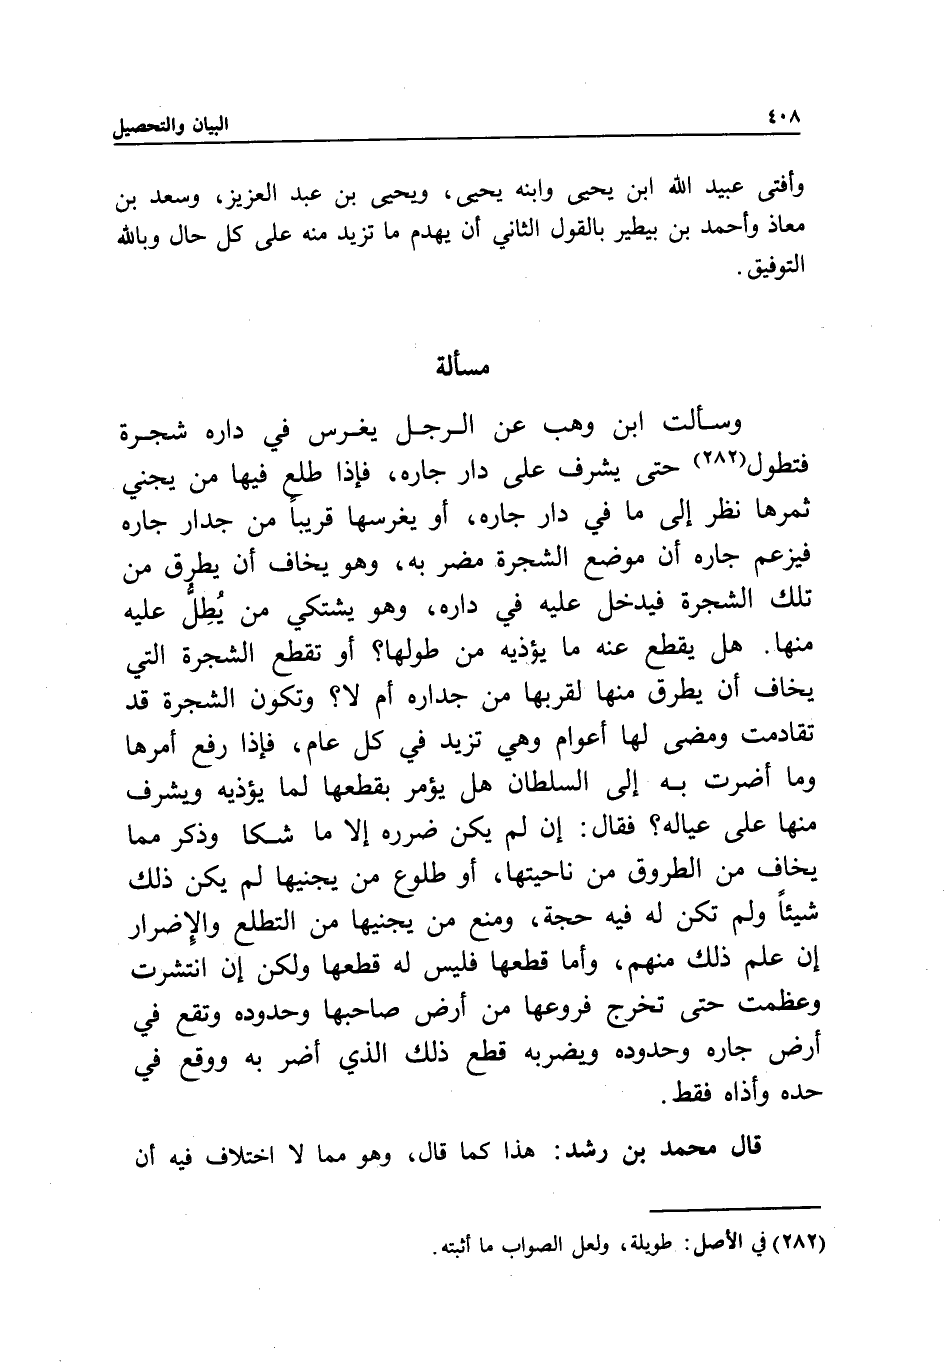 ٤٠٨
البيان والتحصيل
وأفتى عبيد الله ابن يحيى وابنه يحيى، ويحيى بن عبد العزيز، وسعد بن
معاذ وأحمد بن بيطير بالقول الثاني أن يهدم ما تزيد منه على كل حال وبالله
التوفيق.
مسألة
وسألت ابن وهب عن الرجل يغرس في داره شجرة
فتطول(٢٨٢) حتى يشرف على دار جاره، فإذا طلع فيها من يجني
ثمرها نظر إلى ما في دار جاره، أو يغرسها قريباً من جدار جاره
فيزعم جاره أن موضع الشجرة مضر به، وهو يخاف أن يطرق من
تلك الشجرة فيدخل عليه في داره، وهو يشتكي من يُطِلُّ عليه
منها. هل يقطع عنه ما يؤذيه من طولها؟ أو تقطع الشجرة التي
يخاف أن يطرق منها لقربها من جداره أم لا؟ وتكون الشجرة قد
تقادمت ومضى لها أعوام وهي تزيد في كل عام، فإذا رفع أمرها
وما أضرت به إلى السلطان هل يؤمر بقطعها لما يؤذيه ويشرف
منها على عياله؟ فقال: إن لم يكن ضرره إلا ما شكا وذكر مما
يخاف من الطروق من ناحيتها، أو طلوع من يجنيها لم يكن ذلك
شيئاً ولم تكن له فيه حجة، ومنع من يجنيها من التطلع والإضرار
إن علم ذلك منهم، وأما قطعها فليس له قطعها ولكن إن انتشرت
وعظمت حتى تخرج فروعها من أرض صاحبها وحدوده وتقع في
أرض جاره وحدوده ويضربه قطع ذلك الذي أضر به ووقع في
حده وأذاه فقط.
قال محمد بن رشد: هذا كما قال، وهو مما لا اختلاف فيه أن
(٢٨٢) في الأصل: طويلة، ولعل الصواب ما أثبته.